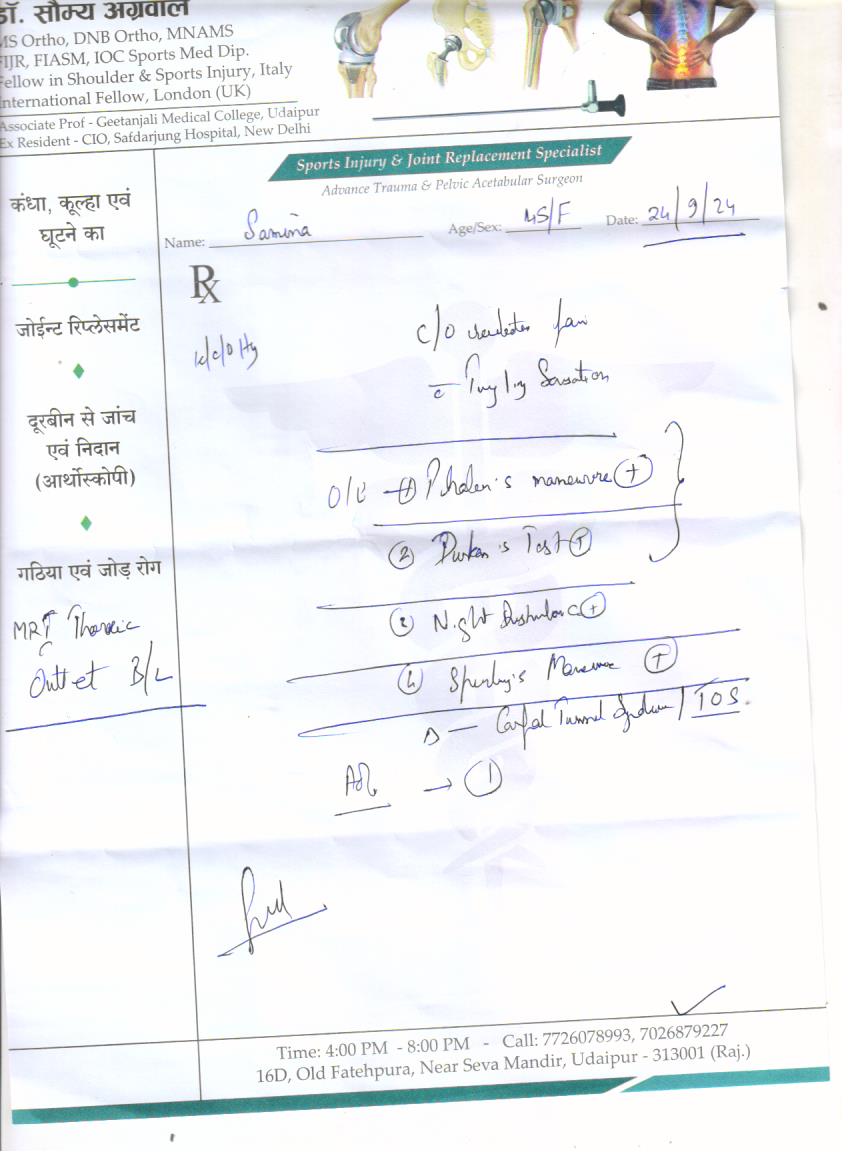 डॉ. सौम्य अग्रवाल
MS Ortho, DNB Ortho, MNAMS
FIJR, FIASM, IOC Sports Med Dip.
Fellow in Shoulder & Sports Injury, Italy
International Fellow, London (UK)
Associate Prof - Geetanjali Medical College, Udaipur
Ex Resident - CIO, Safdarjung Hospital, New Delhi
Sports Injury & Joint Replacement Specialist
Advance Trauma & Pelvic Acetabular Surgeon
Name: Samina Age/Sex: 45/F Date: 24/9/24
कंधा, कूल्हा एवं
घूटने का
जोईन्ट रिप्लेसमेंट
दूरबीन से जांच
एवं निदान
(आर्थोस्कोपी)
गठिया एवं जोड़ रोग
MRI Thoracic
Outlet B/L
Rx
K/c/o
C/O pain
c̄ Tingling Sensation
O/E → ① Phalen's maneuvre ⊕
② Durkan's Test ⊕
③ Night ⊕
④ Maneuvre ⊕
Δ — Carpal Tunnel Syndrome / TOS.
Adv. → ①
Time: 4:00 PM - 8:00 PM - Call: 7726078993, 7026879227
16D, Old Fatehpura, Near Seva Mandir, Udaipur - 313001 (Raj.)